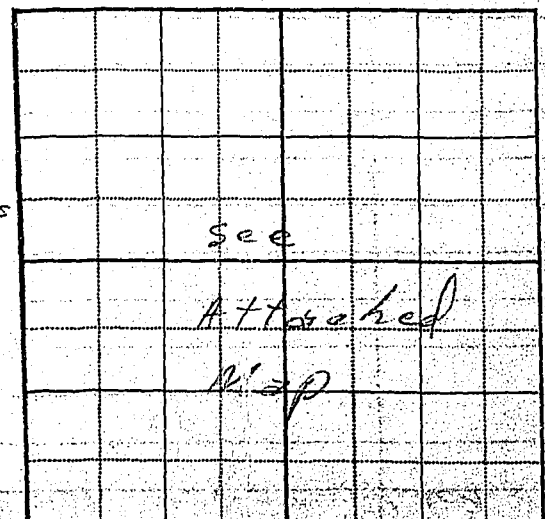 see
Attached
Map